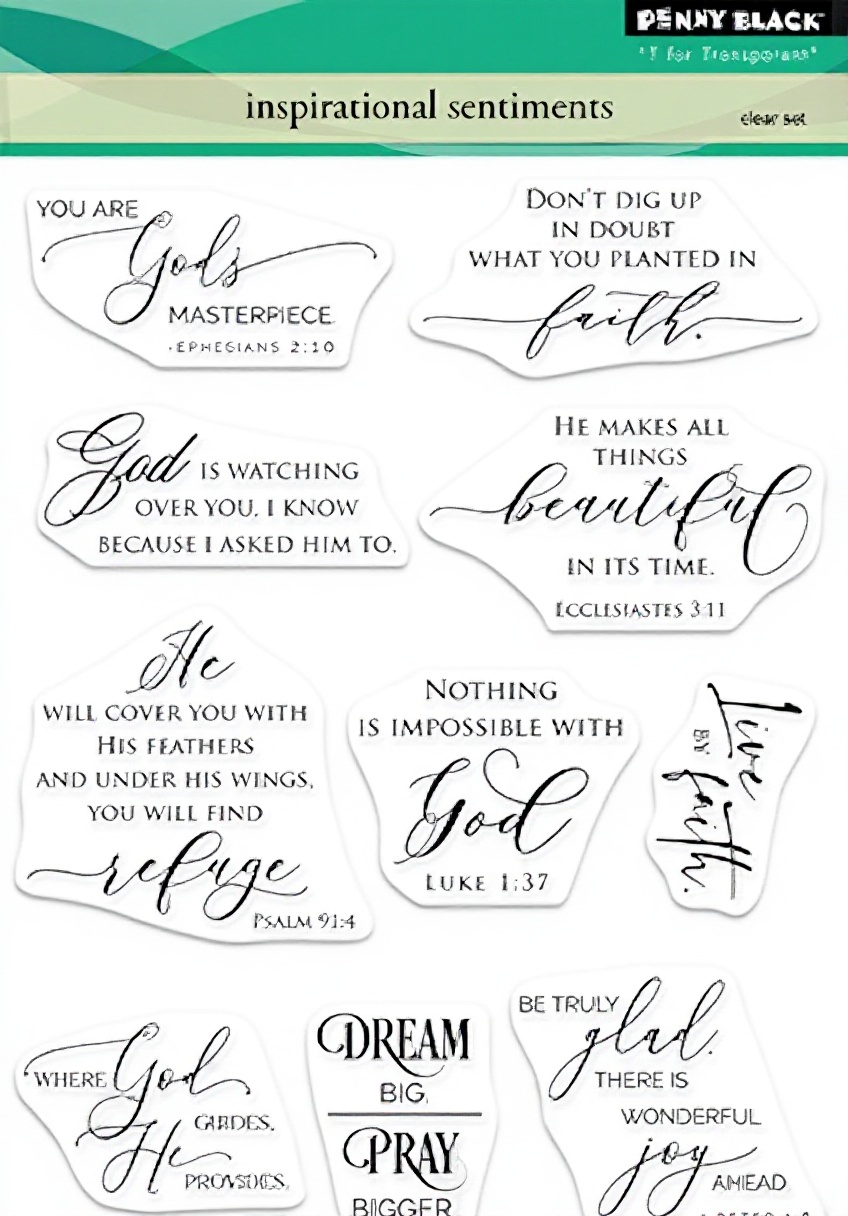 PENNY BLACK
inspirational sentiments
clear set
YOU ARE
Gods
MASTERPIECE
-EPHESIANS 2:10
DON'T DIG UP
IN DOUBT
WHAT YOU PLANTED IN
faith.
God IS WATCHING
OVER YOU, I KNOW
BECAUSE I ASKED HIM TO.
HE MAKES ALL
THINGS
beautiful
IN ITS TIME.
ECCLESIASTES 3:11
He
WILL COVER YOU WITH
HIS FEATHERS
AND UNDER HIS WINGS,
YOU WILL FIND
refuge
PSALM 91:4
NOTHING
IS IMPOSSIBLE WITH
God
LUKE 1:37
Live
BY
faith.
WHERE God
GUIDES,
He
PROVIDES.
DREAM
BIG,
PRAY
BIGGER
BE TRULY
glad.
THERE IS
WONDERFUL
joy
AHEAD